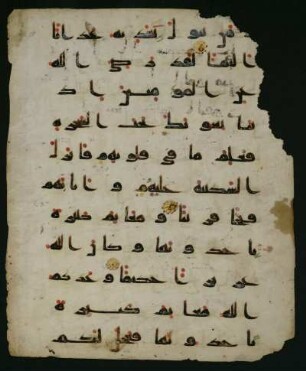 ومن يتول يعذبه عذابا
اليما لقد رضي الله
عن المومنين اذ
يبايعونك تحت الشجرة
فعلم ما في قلوبهم فانزل
السكينة عليهم و اثابهم
فتحا قريبا و مغانم كثيرة
ياخذونها و كان الله
عزيزا حكيما وعدكم
الله مغانم كثيرة
تاخذونها فعجل لكم